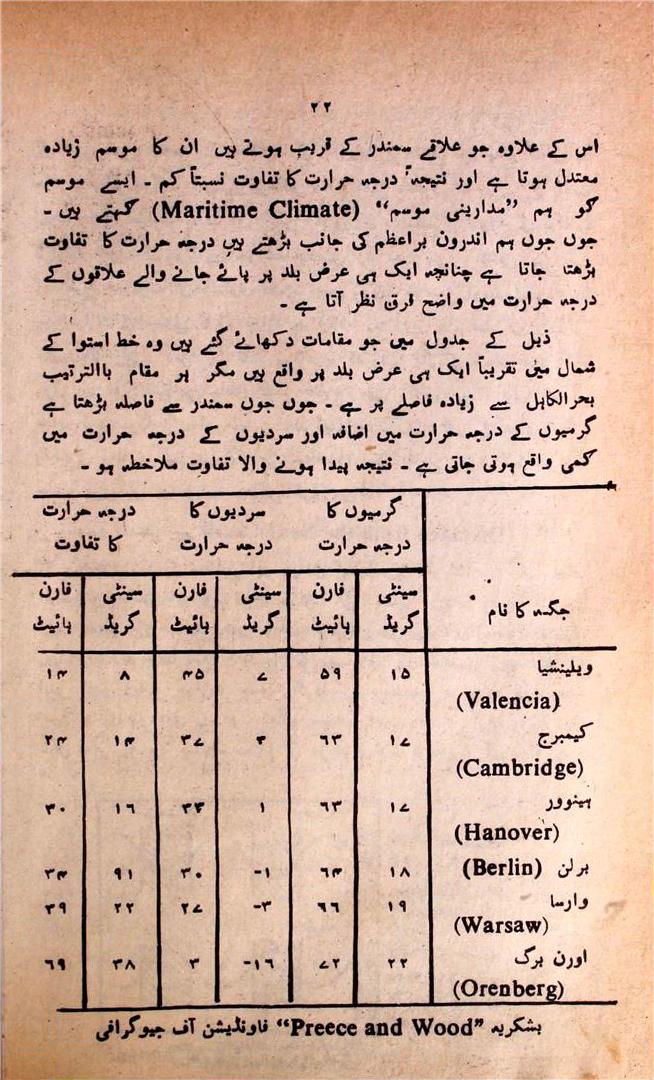 ۲۲
اس کے علاوہ جو علاقے سمندر کے قریب ہوتے ہیں ان کا موسم زیادہ
معتدل ہوتا ہے اور نتیجہً درجہ حرارت کا تفاوت نسبتاً کم ۔ ایسے موسم
کو ہم ”مدارینی موسم“ (Maritime Climate) کہتے ہیں ۔
جوں جوں ہم اندرون براعظم کی جانب بڑھتے ہیں درجہ حرارت کا تفاوت
بڑھتا جاتا ہے چنانچہ ایک ہی عرض بلد پر پائے جانے والے علاقوں کے
درجہ حرارت میں واضح فرق نظر آتا ہے ۔
ذیل کے جدول میں جو مقامات دکھائے گئے ہیں وہ خط استوا کے
شمال میں تقریباً ایک ہی عرض بلد پر واقع ہیں مگر ہر مقام باالترتیب
بحرالکاہل سے زیادہ فاصلے پر ہے ۔ جوں جوں سمندر سے فاصلہ بڑھتا ہے
گرمیوں کے درجہ حرارت میں اضافہ اور سردیوں کے درجہ حرارت میں
کمی واقع ہوتی جاتی ہے ۔ نتیجہ پیدا ہونے والا تفاوت ملاخطہ ہو ۔
گرمیوں کا سردیوں کا درجہ حرارت
درجہ حرارت درجہ حرارت کا تفاوت
جگہ کا نام
سینٹی فارن سینٹی فارن سینٹی فارن
گریڈ ہائیٹ گریڈ ہائیٹ گریڈ ہائیٹ
ویلینشیا ۱۵ ۵۹ ۷ ۴۵ ۸ ۱۴
(Valencia)
کیمبرج ۱۷ ۶۳ ۳ ۳۷ ۱۴ ۲۴
(Cambridge)
ہینوور ۱۷ ۶۳ ۱ ۳۳ ۱۶ ۳۰
(Hanover)
برلن (Berlin) ۱۸ ۶۴ -۱ ۳۰ ۹۱ ۳۴
وارسا ۱۹ ۶۶ -۳ ۲۷ ۲۲ ۳۹
(Warsaw)
اورن برگ ۲۲ ۷۲ -۱۶ ۳ ۳۸ ۶۹
(Orenberg)
بشکریہ “Preece and Wood” فاونڈیشن آف جیوگرافی